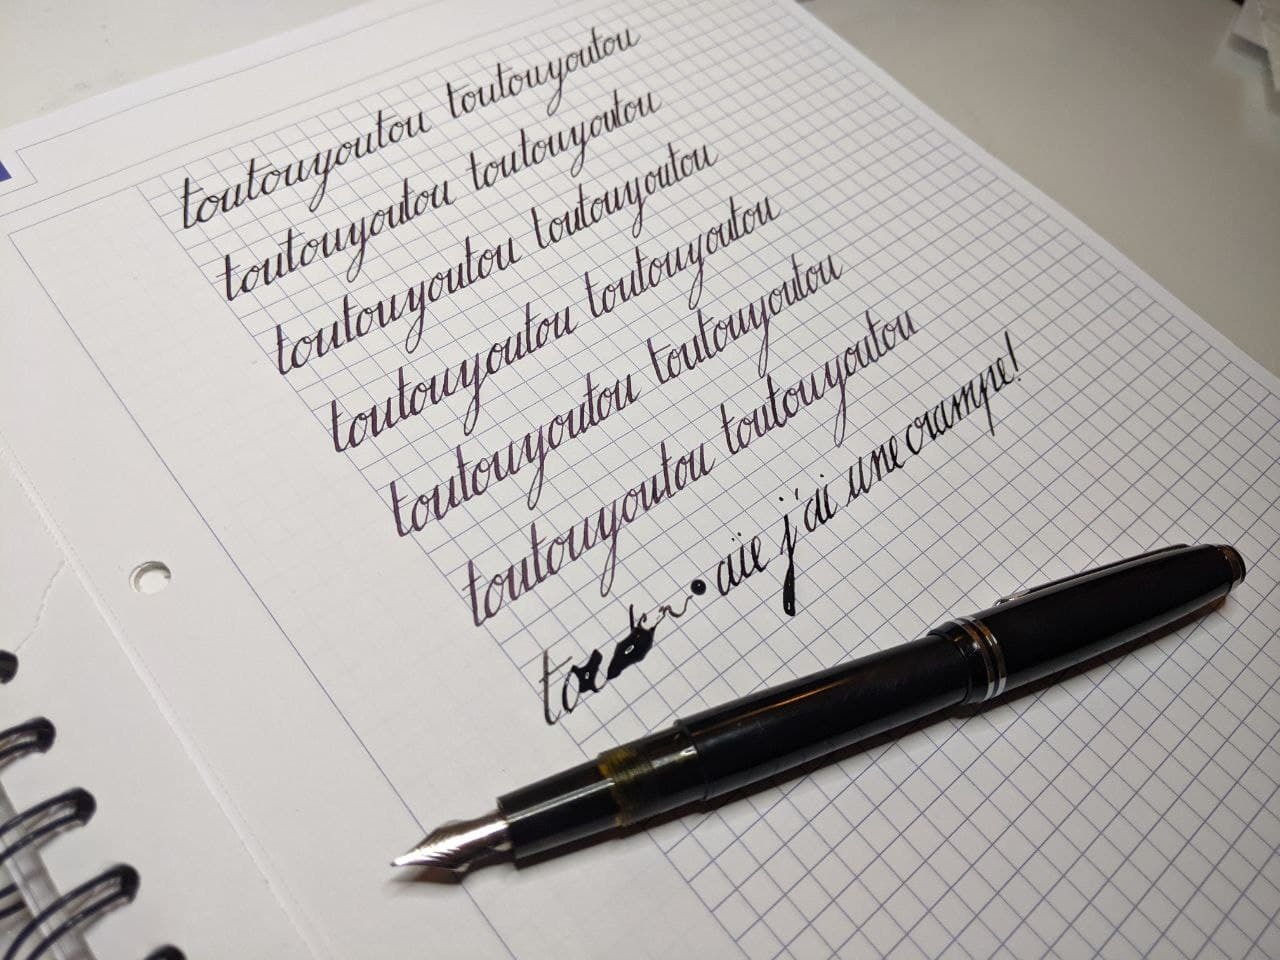 toutouyoutou toutouyoutou
toutouyoutou toutouyoutou
toutouyoutou toutouyoutou
toutouyoutou toutouyoutou
toutouyoutou toutouyoutou
toutouyoutou toutouyoutou
aïe j'ai une crampe!